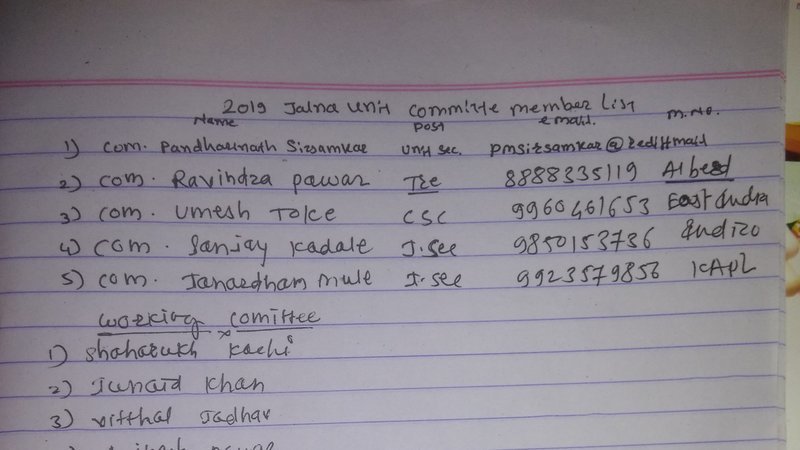 2019 Jalna Unit committe member List
Name Post email. M.No.
1) com. Pandharinath Sirsamkar Unit Sec. pmsirsamkar@redittmail
2) com. Ravindra pawar Tre 8888335119 Albesd
3) com. Umesh Toke CSC 9960461653 East India
4) com. Sanjay Kadale J.sec 9850153736 Indizo
5) com. Janardham mule J.sec 9923579856 KAPL
working comittee
1) Shaharukh Kachi
2) Junaid Khan
3) Vitthal Jadhav